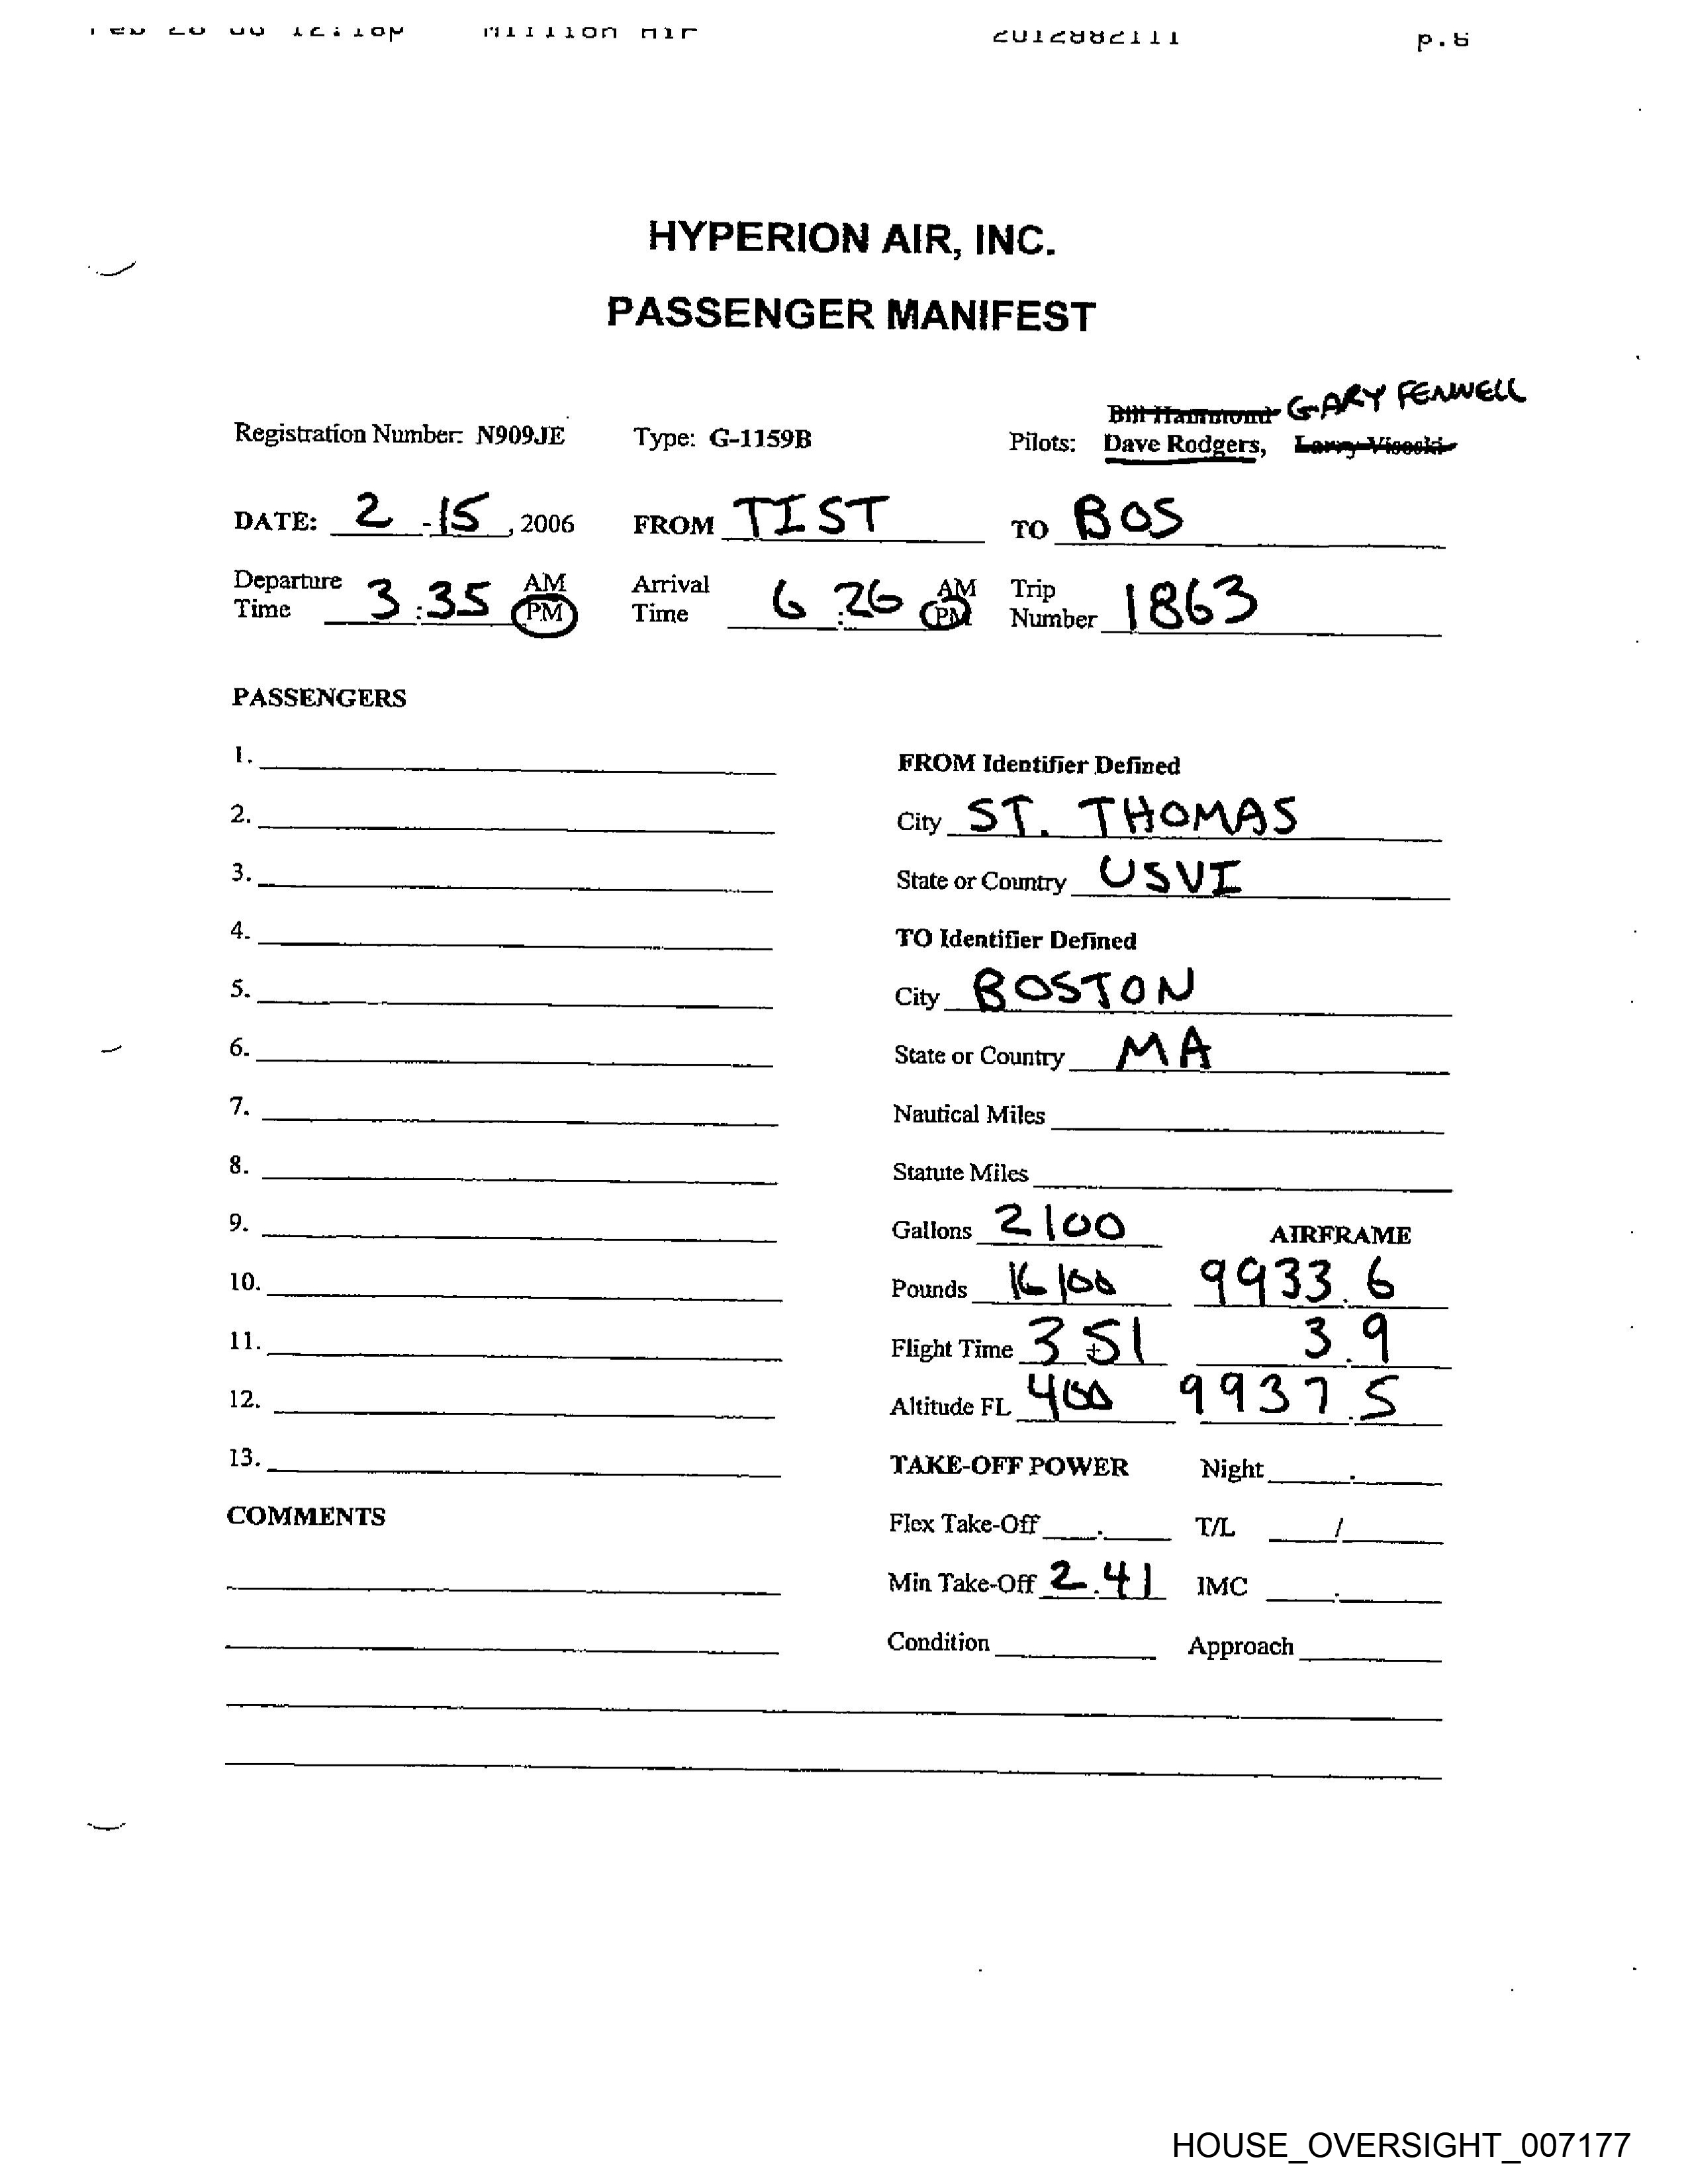 Million Air 2012882111 p.8
HYPERION AIR, INC.
PASSENGER MANIFEST
Bill Hammond GARY FENWELL
Registration Number: N909JE Type: G-1159B Pilots: Dave Rodgers, Larry Visoski
DATE: 2 - 15, 2006 FROM TIST TO BOS
Departure Time 3:35 AM PM Arrival Time 6:26 AM PM Trip Number 1863
PASSENGERS
1.
FROM Identifier Defined
2.
City ST. THOMAS
3.
State or Country USVI
4.
TO Identifier Defined
5.
City BOSTON
6.
State or Country MA
7.
Nautical Miles
8.
Statute Miles
9.
Gallons 2100 AIRFRAME
10.
Pounds 16100 9933.6
11.
Flight Time 3+51 3.9
12.
Altitude FL 400 9937.5
13.
TAKE-OFF POWER Night .
COMMENTS
Flex Take-Off . T/L /
Min Take-Off 2.41 IMC .
Condition Approach
HOUSE_OVERSIGHT_007177